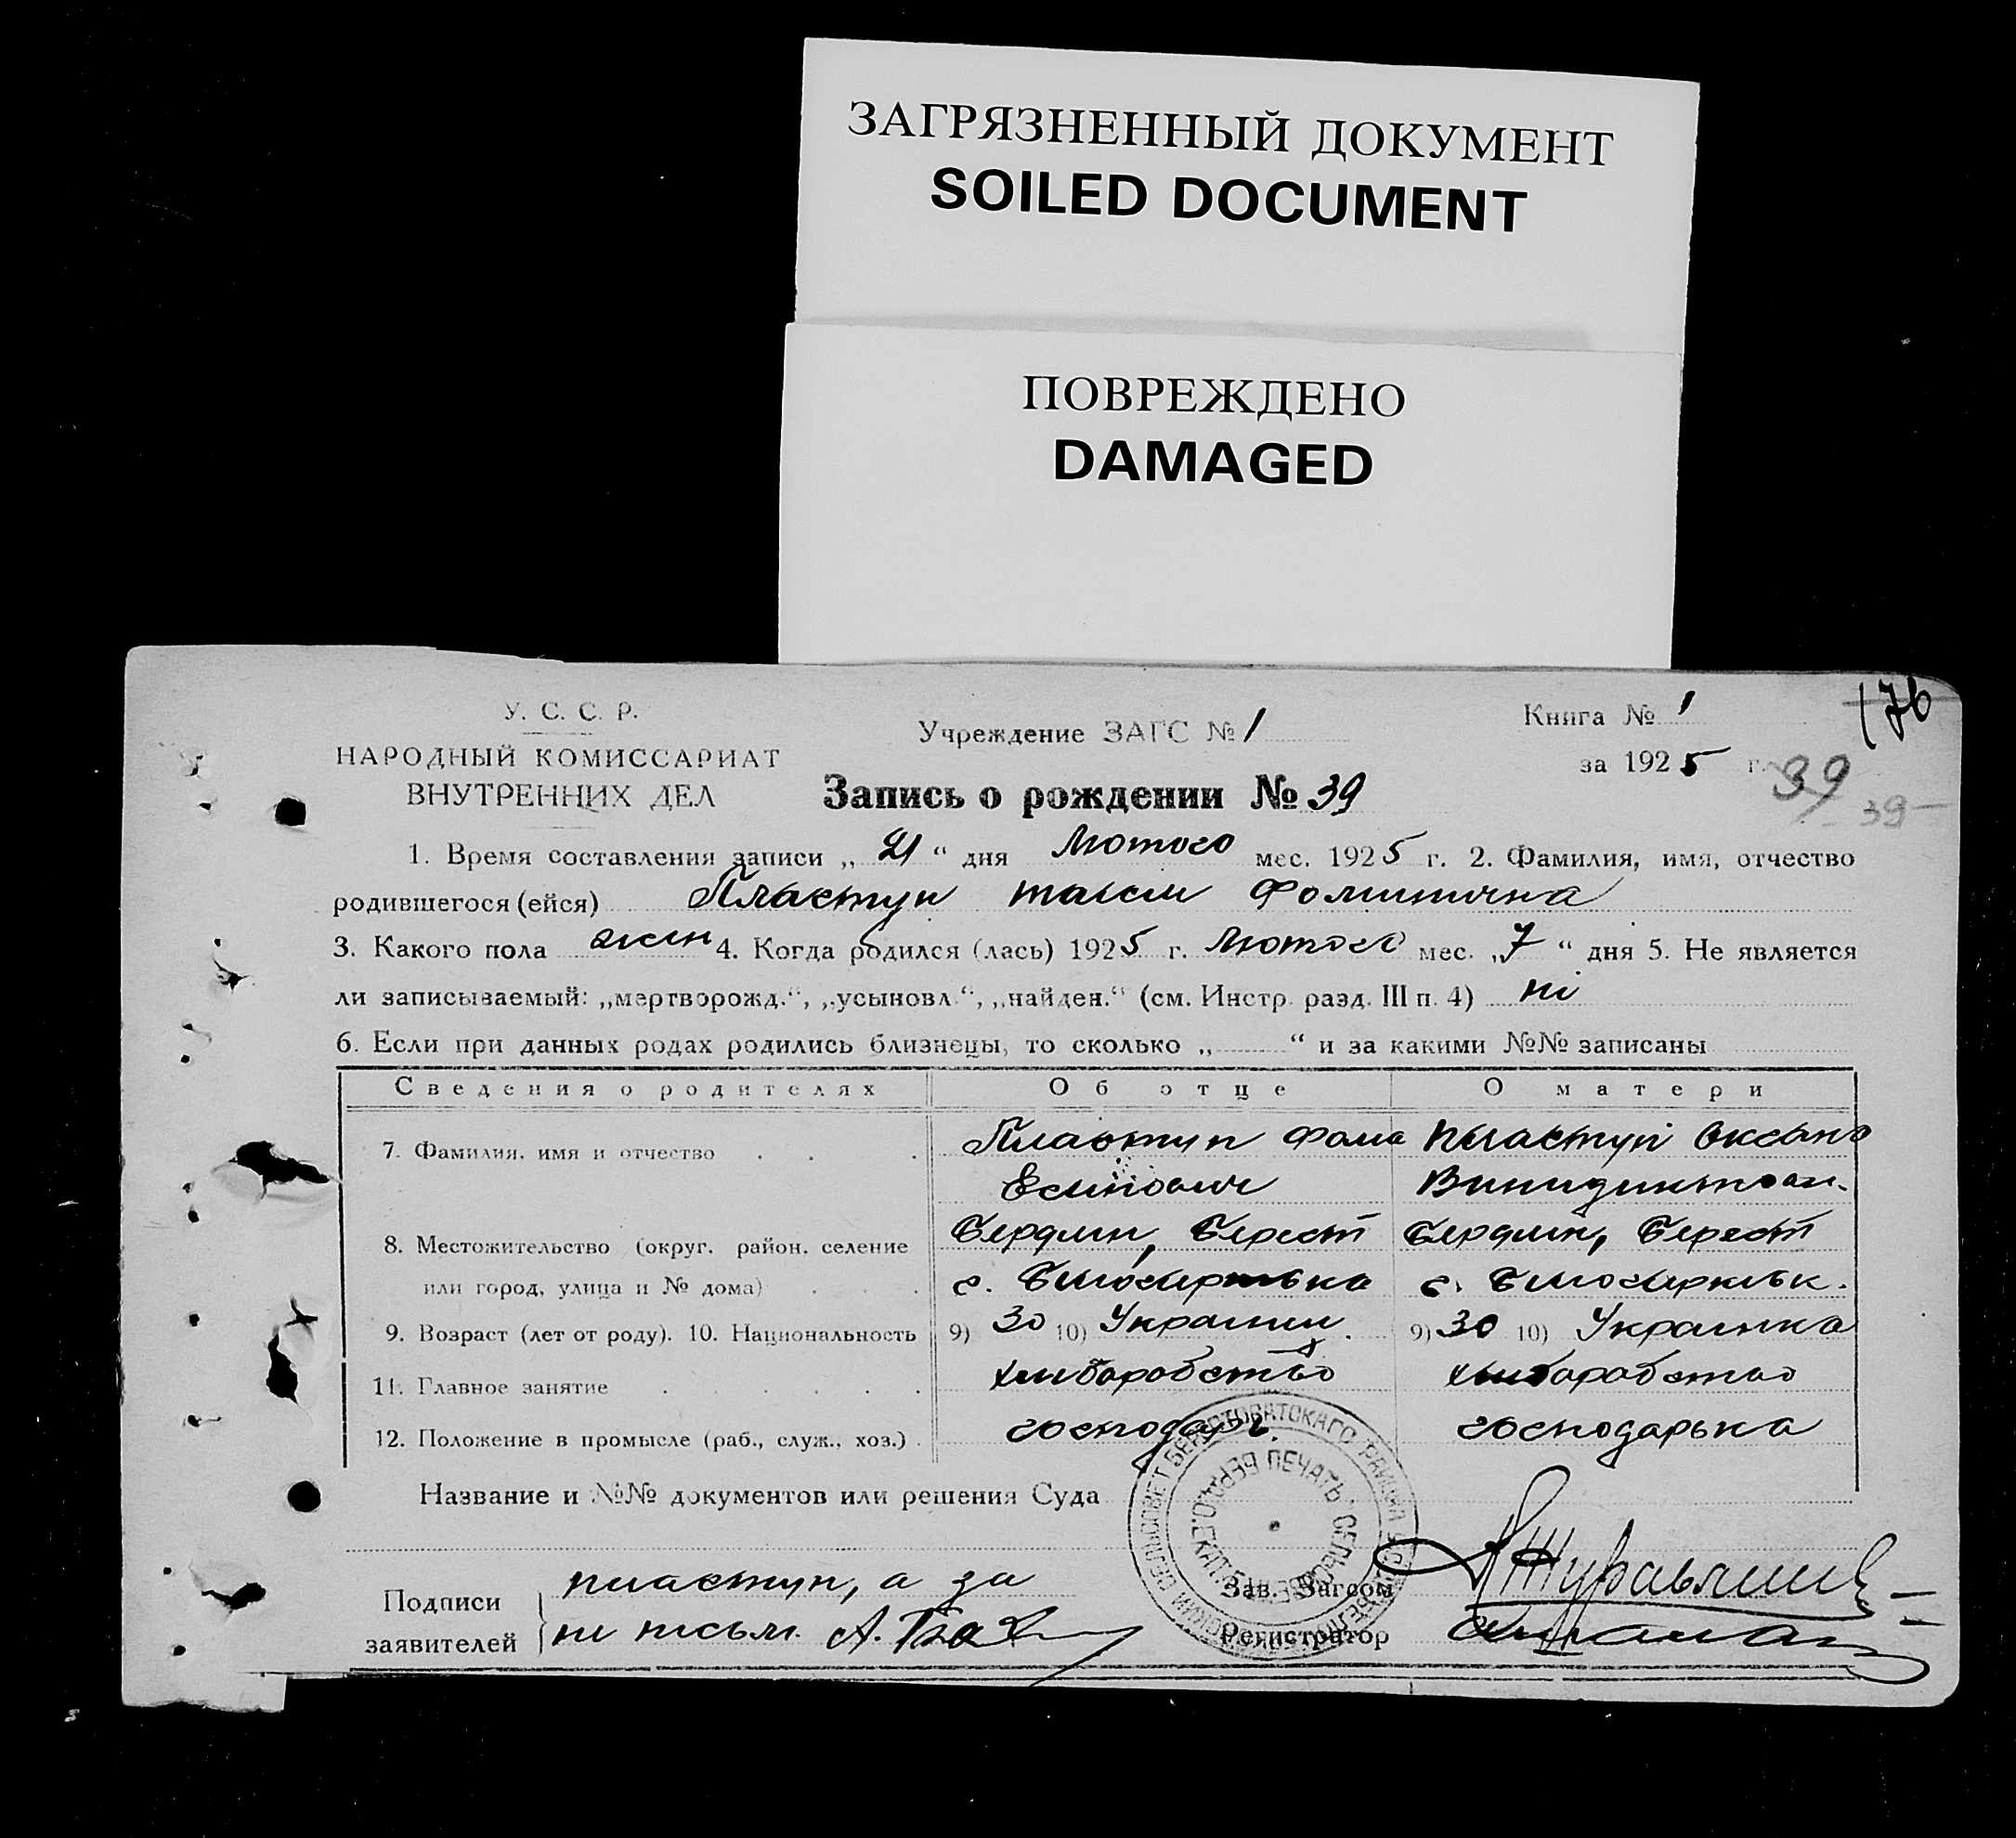 ЗАГРЯЗНЕННЫЙ ДОКУМЕНТ
SOILED DOCUMENT
ПОВРЕЖДЕНО
DAMAGED
176
У. С. С. Р.
НАРОДНЫЙ КОМИССАРИАТ
ВНУТРЕННИХ ДЕЛ
Учреждение ЗАГС № 1
Книга № 1
за 1925 г.
39
39
Запись о рождении № 39
1. Время составления записи „ 21 “ дня Лютого мес. 1925 г. 2. Фамилия, имя, отчество
родившегося (ейся) Пластун Фоминична
3. Какого пола жен 4. Когда родился (лась) 1925 г. Лютого мес. „ 7 “ дня 5. Не является
ли записываемый: „мертворожд.“, „усыновл.“, „найден.“ (см. Инстр. разд. III п. 4) ні
6. Если при данных родах родились близнецы, то сколько „ “ и за какими №№ записаны
Сведения о родителях Об отце О матери
7. Фамилия, имя и отчество Пластун Фома Пластун Оксана
8. Местожительство (округ, район, селение Бердян, Берест Бердян, Берест
или город, улица и № дома) с. с.
9. Возраст (лет от роду). 10. Национальность 9) 30 10) Украин 9) 30 10) Украинка
11. Главное занятие хлибаробство хлибаробство
12. Положение в промысле (раб., служ., хоз.) господарь господарька
Название и №№ документов или решения Суда
ПЕЧАТЬ
Подписи
заявителей
Пластун, а за
не письм. А.
Зав. Загсом
Регистратор